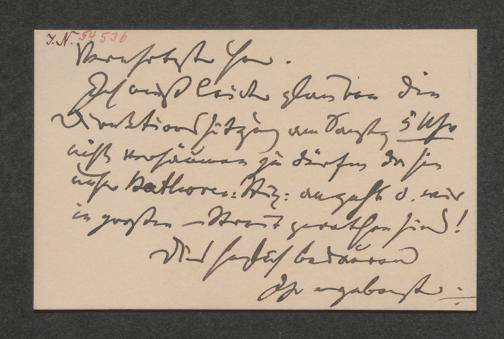 I. N. 54536
Verehrtester Herr.
Ich muß leider glauben die
Direktionssitzung am Samstag 5 Uhr
nicht versäumen zu dürfen da sie
unser Beethoven: angeht u. wir
in großen Streit gerathen sind!
bedauernd
Ihr ergebenster